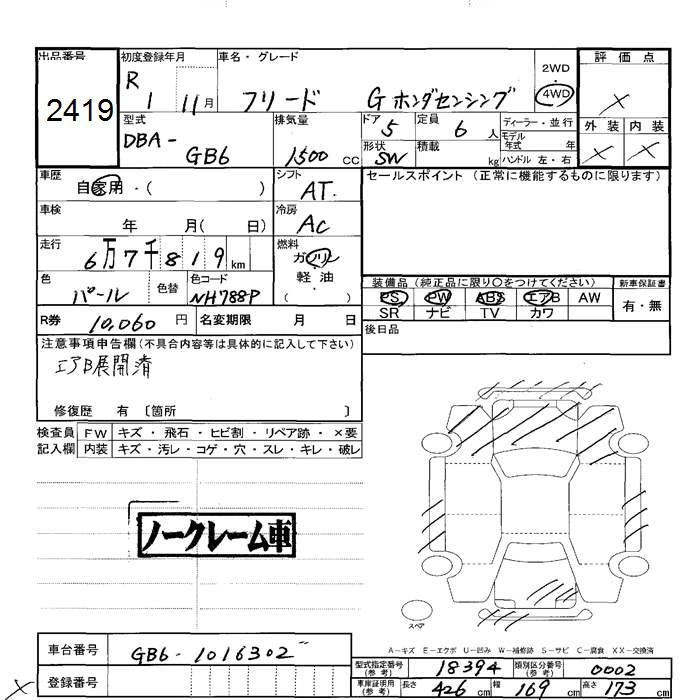 出品番号 2419
初度登録年月 R 1 11月
車名・グレード フリード Gホンダセンシング
2WD・4WD
評価点 ×
外装 × 内装 ×
型式 DBA- GB6
排気量 1500 cc
ドア 5
定員 6 人
ディーラー・並行
モデル年式 年
形状 SW
積載 kg
ハンドル 左・右
車歴 自家用・( )
シフト AT
セールスポイント (正常に機能するものに限ります)
車検 年 月( 日)
冷房 AC
走行 6万7千819 km
燃料 ガソリン 軽油 ( )
色 パール 色替
色コード NH788P
装備品 (純正品に限り○をつけてください)
新車保証書
PS PW ABS エアB AW
有・無
SR ナビ TV カワ
R券 10,060 円
名変期限 月 日
後日品
注意事項申告欄(不具合内容等は具体的に記入して下さい)
エアB展開済
修復歴 有 〔箇所 〕
検査員 FW キズ・飛石・ヒビ割・リペア跡・×要
記入欄 内装 キズ・汚レ・コゲ・穴・スレ・キレ・破レ
ノークレーム車
スペア
A-キズ E-エクボ U-凹み W-補修跡 S-サビ C-腐食 XX-交換済
車台番号 GB6-1016302
登録番号
×
型式指定番号(参考) 18394
類別区分番号(参考) 0002
車庫証明用(参考) 長さ 426 cm 幅 169 cm 高さ 173 cm